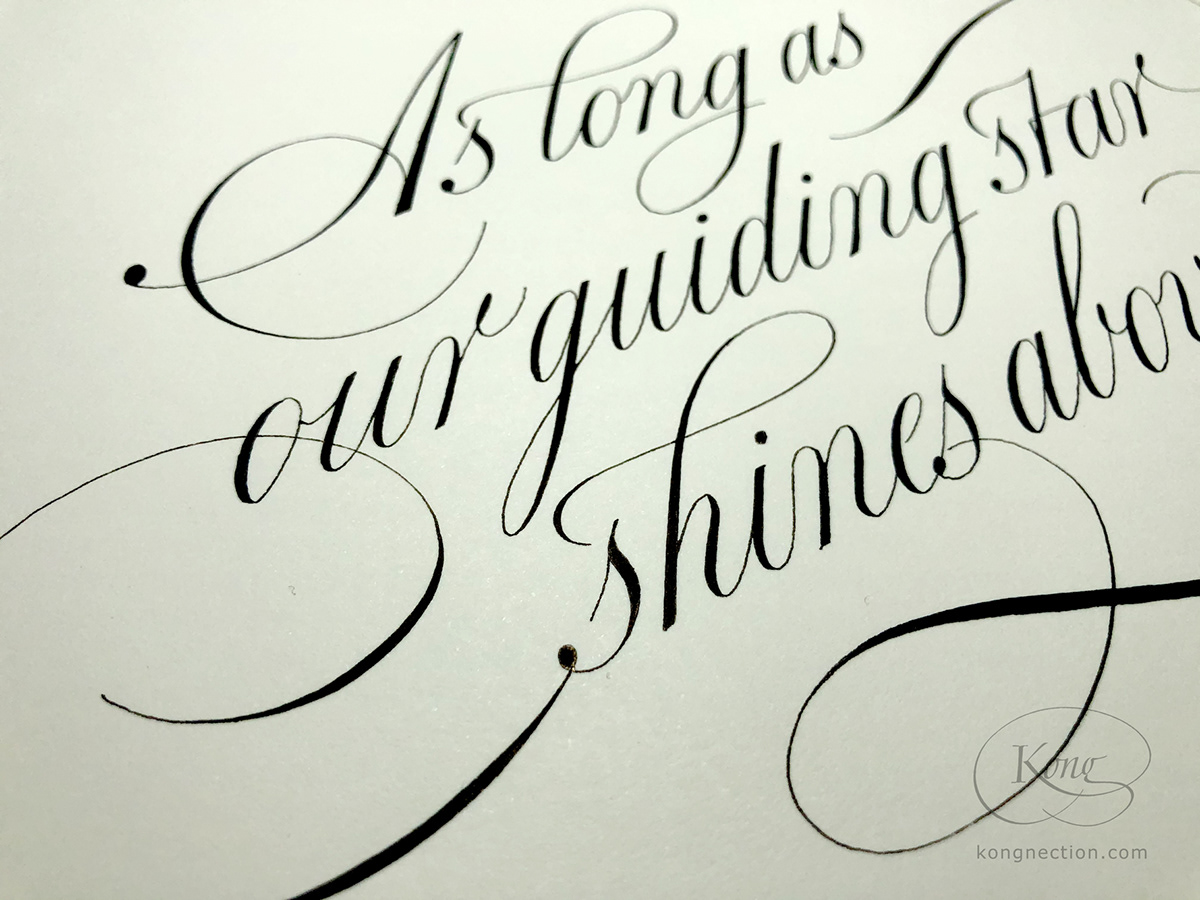 As long as
our guiding star
shines abov
Kong
kongnection.com